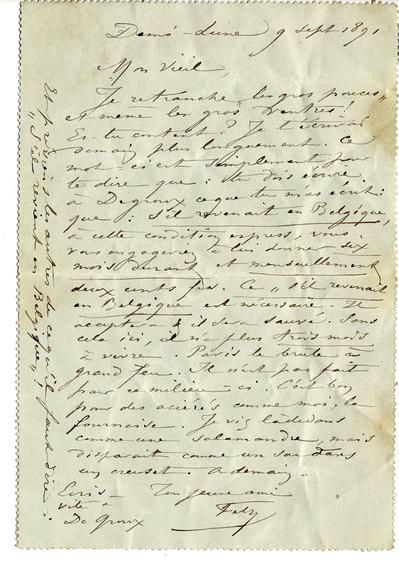 Demi-Lune 9 Sept 1891
Mon Vieil,
Je retranche „les gros pouces„
et même les gros ventres!
Es-tu content? Je t'écrirai
demain plus longuement. Ce
mot-ci c'est simplement pour
te dire que : tu dois écrire
à Degroux ce que tu m'as écrit :
que : s'il revenait en Belgique,
à cette condition express, vous
vous engageriez à lui donner six
mois durant et mensuellement
deux cents frs. Ce „ s'il revenait
en Belgique est nécessaire. Il
acceptera & il sera sauvé. Sans
cela ici, il n'a plus trois mois
à vivre. Paris le brûle à
grand feu. Il n'est pas fait
pour ce milieu-ci. C'est bon
pour des aciérés comme moi, la
fournaise. Je vis là dedans
comme une salamandre, mais
disparait comme un sou dans
un creuset. A demain
Ton jeune ami
Fély
Ecris-
vite à
De Groux
Et préviens les autres de ce qu'il faut dire :
„ S'il revient en Belgique„!